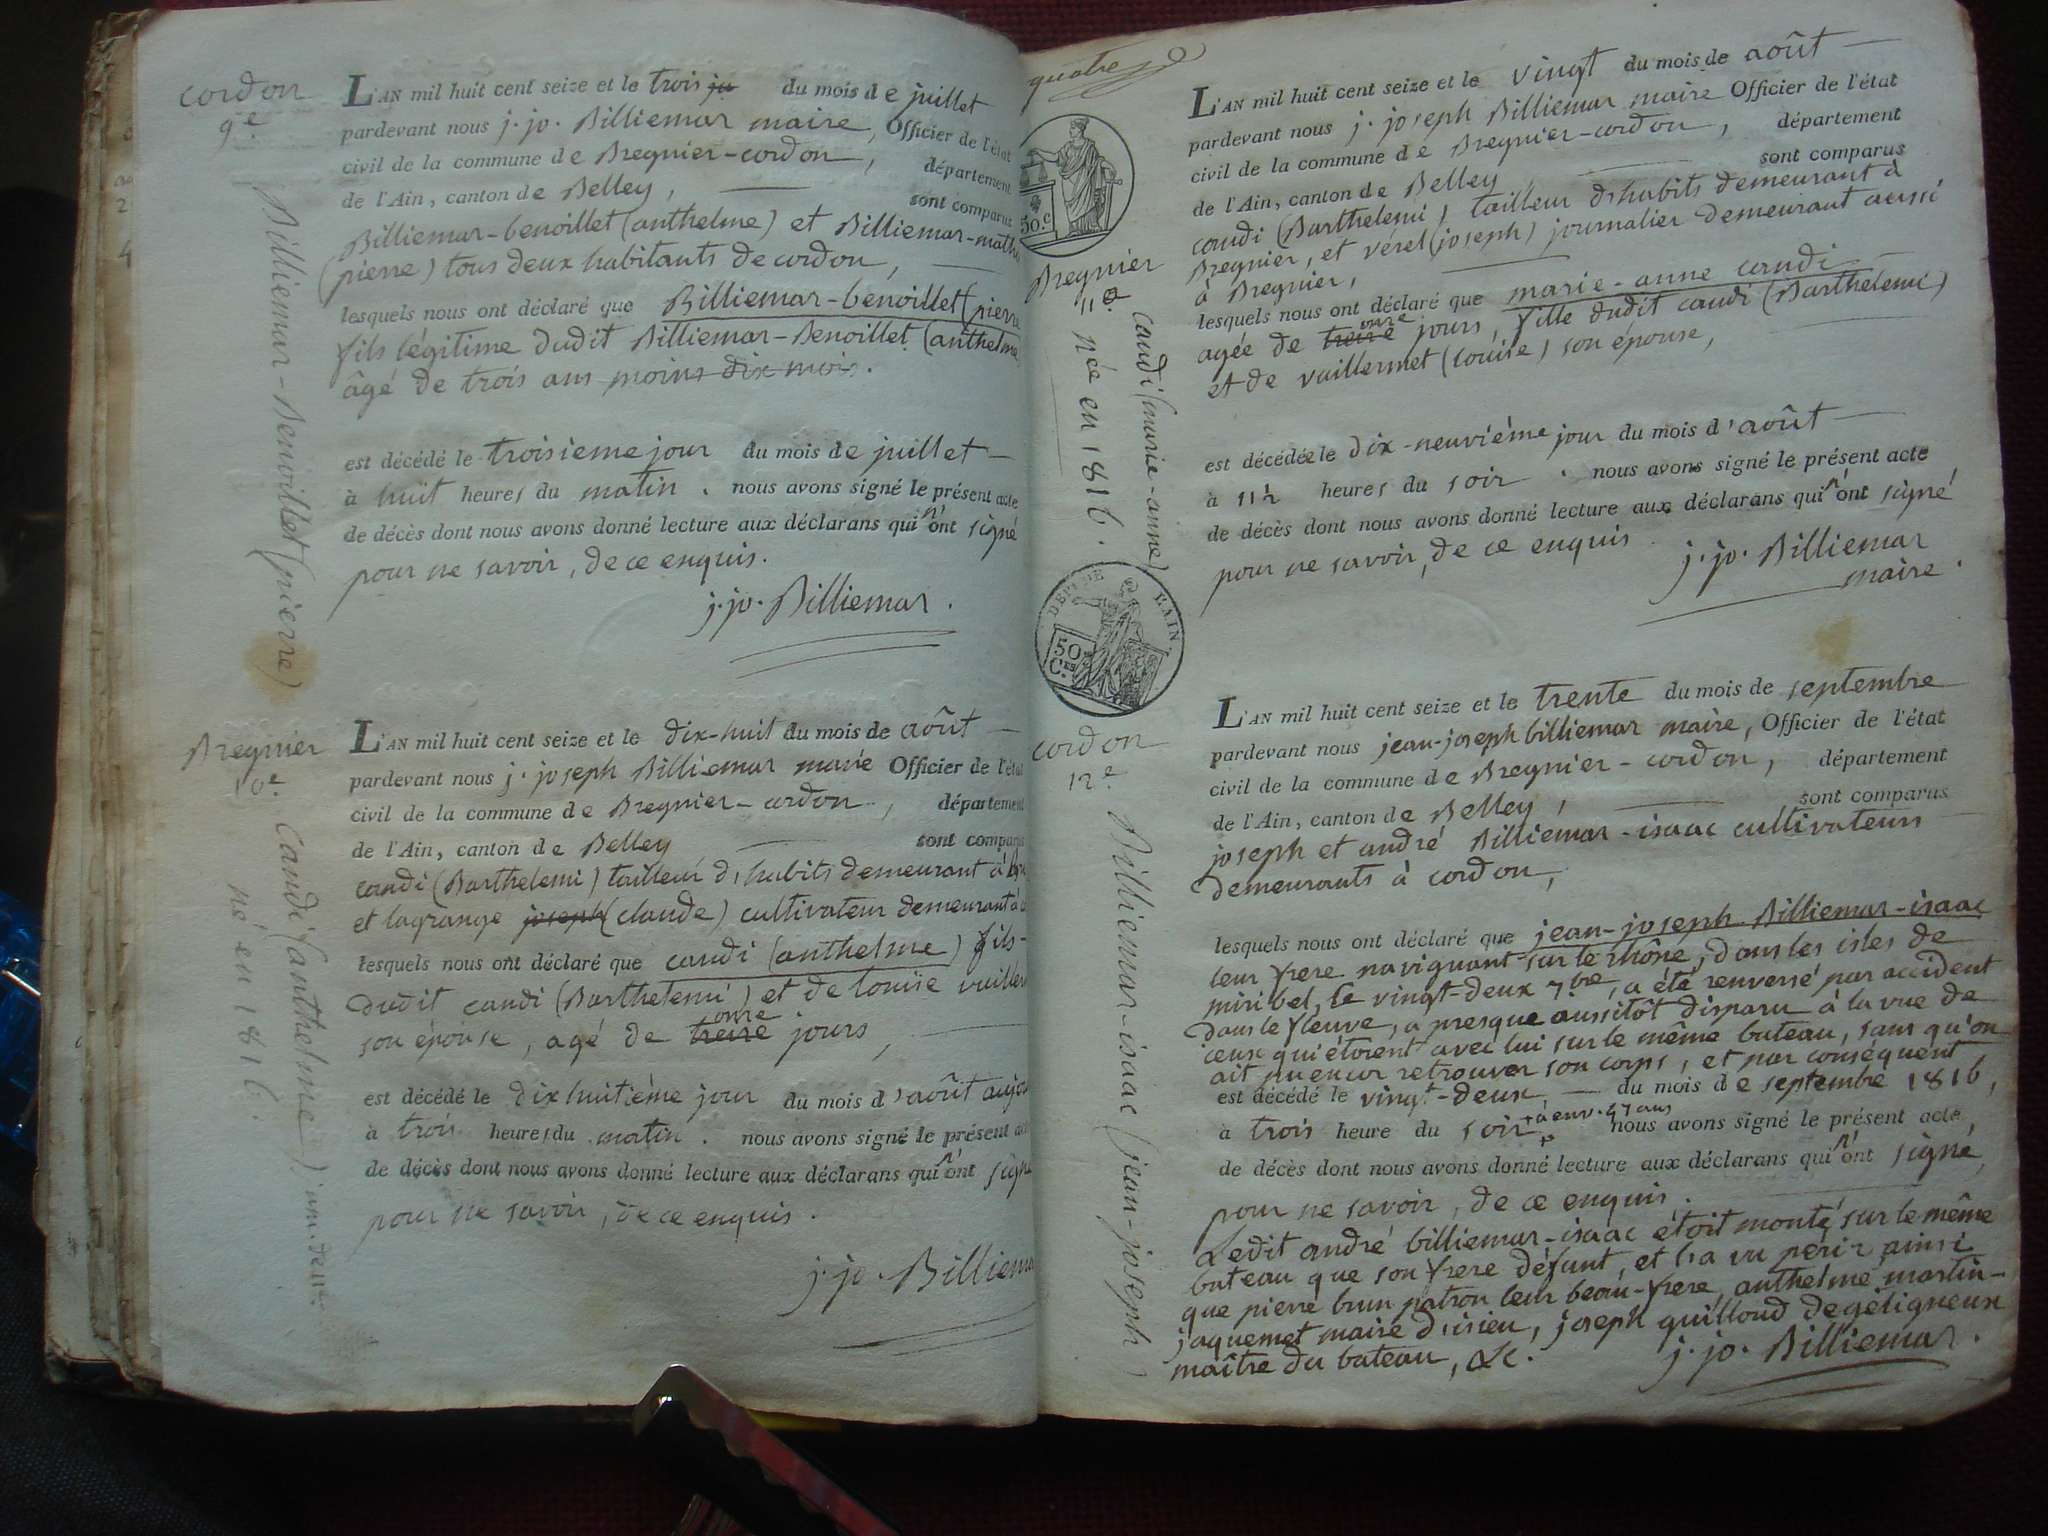 cordon
9e.
Billiemar-Benoillet (pierre)
L'AN mil huit cent seize et le trois ju du mois de juillet
pardevant nous j. jo. Billiemar maire, Officier de l'état
civil de la commune de Bregnier-cordon, département
de l'Ain, canton de Belley, sont comparus
Billiemar-benoillet (anthelme) et Billiemar-math
(pierre) tous deux habitants de cordon,
lesquels nous ont déclaré que Billiemar-benoillet (pierre
fils légitime dudit Billiemar-Benoillet (anthelme
âgé de trois ans moins dix mois.
est décédé le troisieme jour du mois de juillet
à huit heures du matin. nous avons signé le présent acte
de décès dont nous avons donné lecture aux déclarans qui n'ont signé
pour ne savoir, de ce enquis.
j. jo. Billiemar.
Bregnier
10e.
Caudi (anthelme)
né en 1816.
L'AN mil huit cent seize et le dix-huit du mois de août
pardevant nous j. joseph Billiemar maire Officier de l'état
civil de la commune de Bregnier-cordon, département
de l'Ain, canton de Belley sont comparus
caudi (Barthelemi) tailleur d'habits demeurant à
et lagrange joseph (claude) cultivateur demeurant à
lesquels nous ont déclaré que caudi (anthelme) fils
dudit caudi (Barthelemi) et de louise vuiller
son épouse, agé de treize onze jours,
est décédé le dix huitième jour du mois d'août
à trois heures du matin. nous avons signé le présent
de décès dont nous avons donné lecture aux déclarans qui n'ont signé
pour ne savoir, de ce enquis.
j. jo. Billiema
quatre
50.c
Bregnier
11e
caudi (marie-anne)
née en 1816.
L'AN mil huit cent seize et le vingt du mois de août
pardevant nous j. joseph Billiemar maire Officier de l'état
civil de la commune de Bregnier-cordon, département
de l'Ain, canton de Belley, sont comparus
caudi (Barthelemi) tailleur d'habits demeurant à
Bregnier, et vérel (joseph) journalier demeurant aussi
à Bregnier,
lesquels nous ont déclaré que marie-anne caudi
agée de treize onze jours, fille dudit caudi (Barthélemi)
et de vuillermet (louise) son épouse,
est décédée le dix-neuvième jour du mois d'août
à 11h heures du soir. nous avons signé le présent acte
de décès dont nous avons donné lecture aux déclarans qui n'ont signé
pour ne savoir, de ce enquis
j. jo. Billiemar
maire.
DEP. DE L'AIN
50
C.ES
cordon
12e.
Billiemar-isaac (jean-joseph)
L'AN mil huit cent seize et le trente du mois de septembre
pardevant nous jean-joseph billiemar maire, Officier de l'état
civil de la commune de Bregnier-cordon, département
de l'Ain, canton de Belley, sont comparus
joseph et andré Billiemar-isaac cultivateurs
demeurants à cordon,
lesquels nous ont déclaré que jean-joseph Billiemar-isaac
leur frere naviguant sur le rhône, dans les isles de
miribel, le vingt-deux 7bre, a été renversé par accident
dans le fleuve, a presque aussitôt disparu à la vue de
ceux qui étoient avec lui sur le même bateau, sans qu'on
ait pu encor retrouver son corps, et par conséquent
est décédé le vingt-deux du mois de septembre 1816,
à trois heure du soir + à env. 47 ans nous avons signé le présent acte,
de décès dont nous avons donné lecture aux déclarans qui n'ont signé,
pour ne savoir, de ce enquis.
Ledit andré billiemar-isaac étoit monté sur le même
bateau que son frere défunt, et l'a vu périr, ainsi
que pierre brun patron leur beau-frere, anthelme martin-
jaquemet maire d'isieu, joseph guilloud de géligneux
maître du bateau, &c. j. jo. Billiemar.